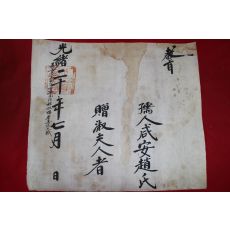 敎旨
孺人咸安趙氏
贈淑夫人者
光緖二十年七月 日